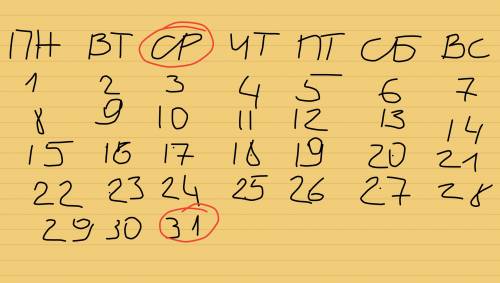 ПН ВТ СР ЧТ ПТ СБ ВС
1 2 3 4 5 6 7
8 9 10 11 12 13 14
15 16 17 18 19 20 21
22 23 24 25 26 27 28
29 30 31